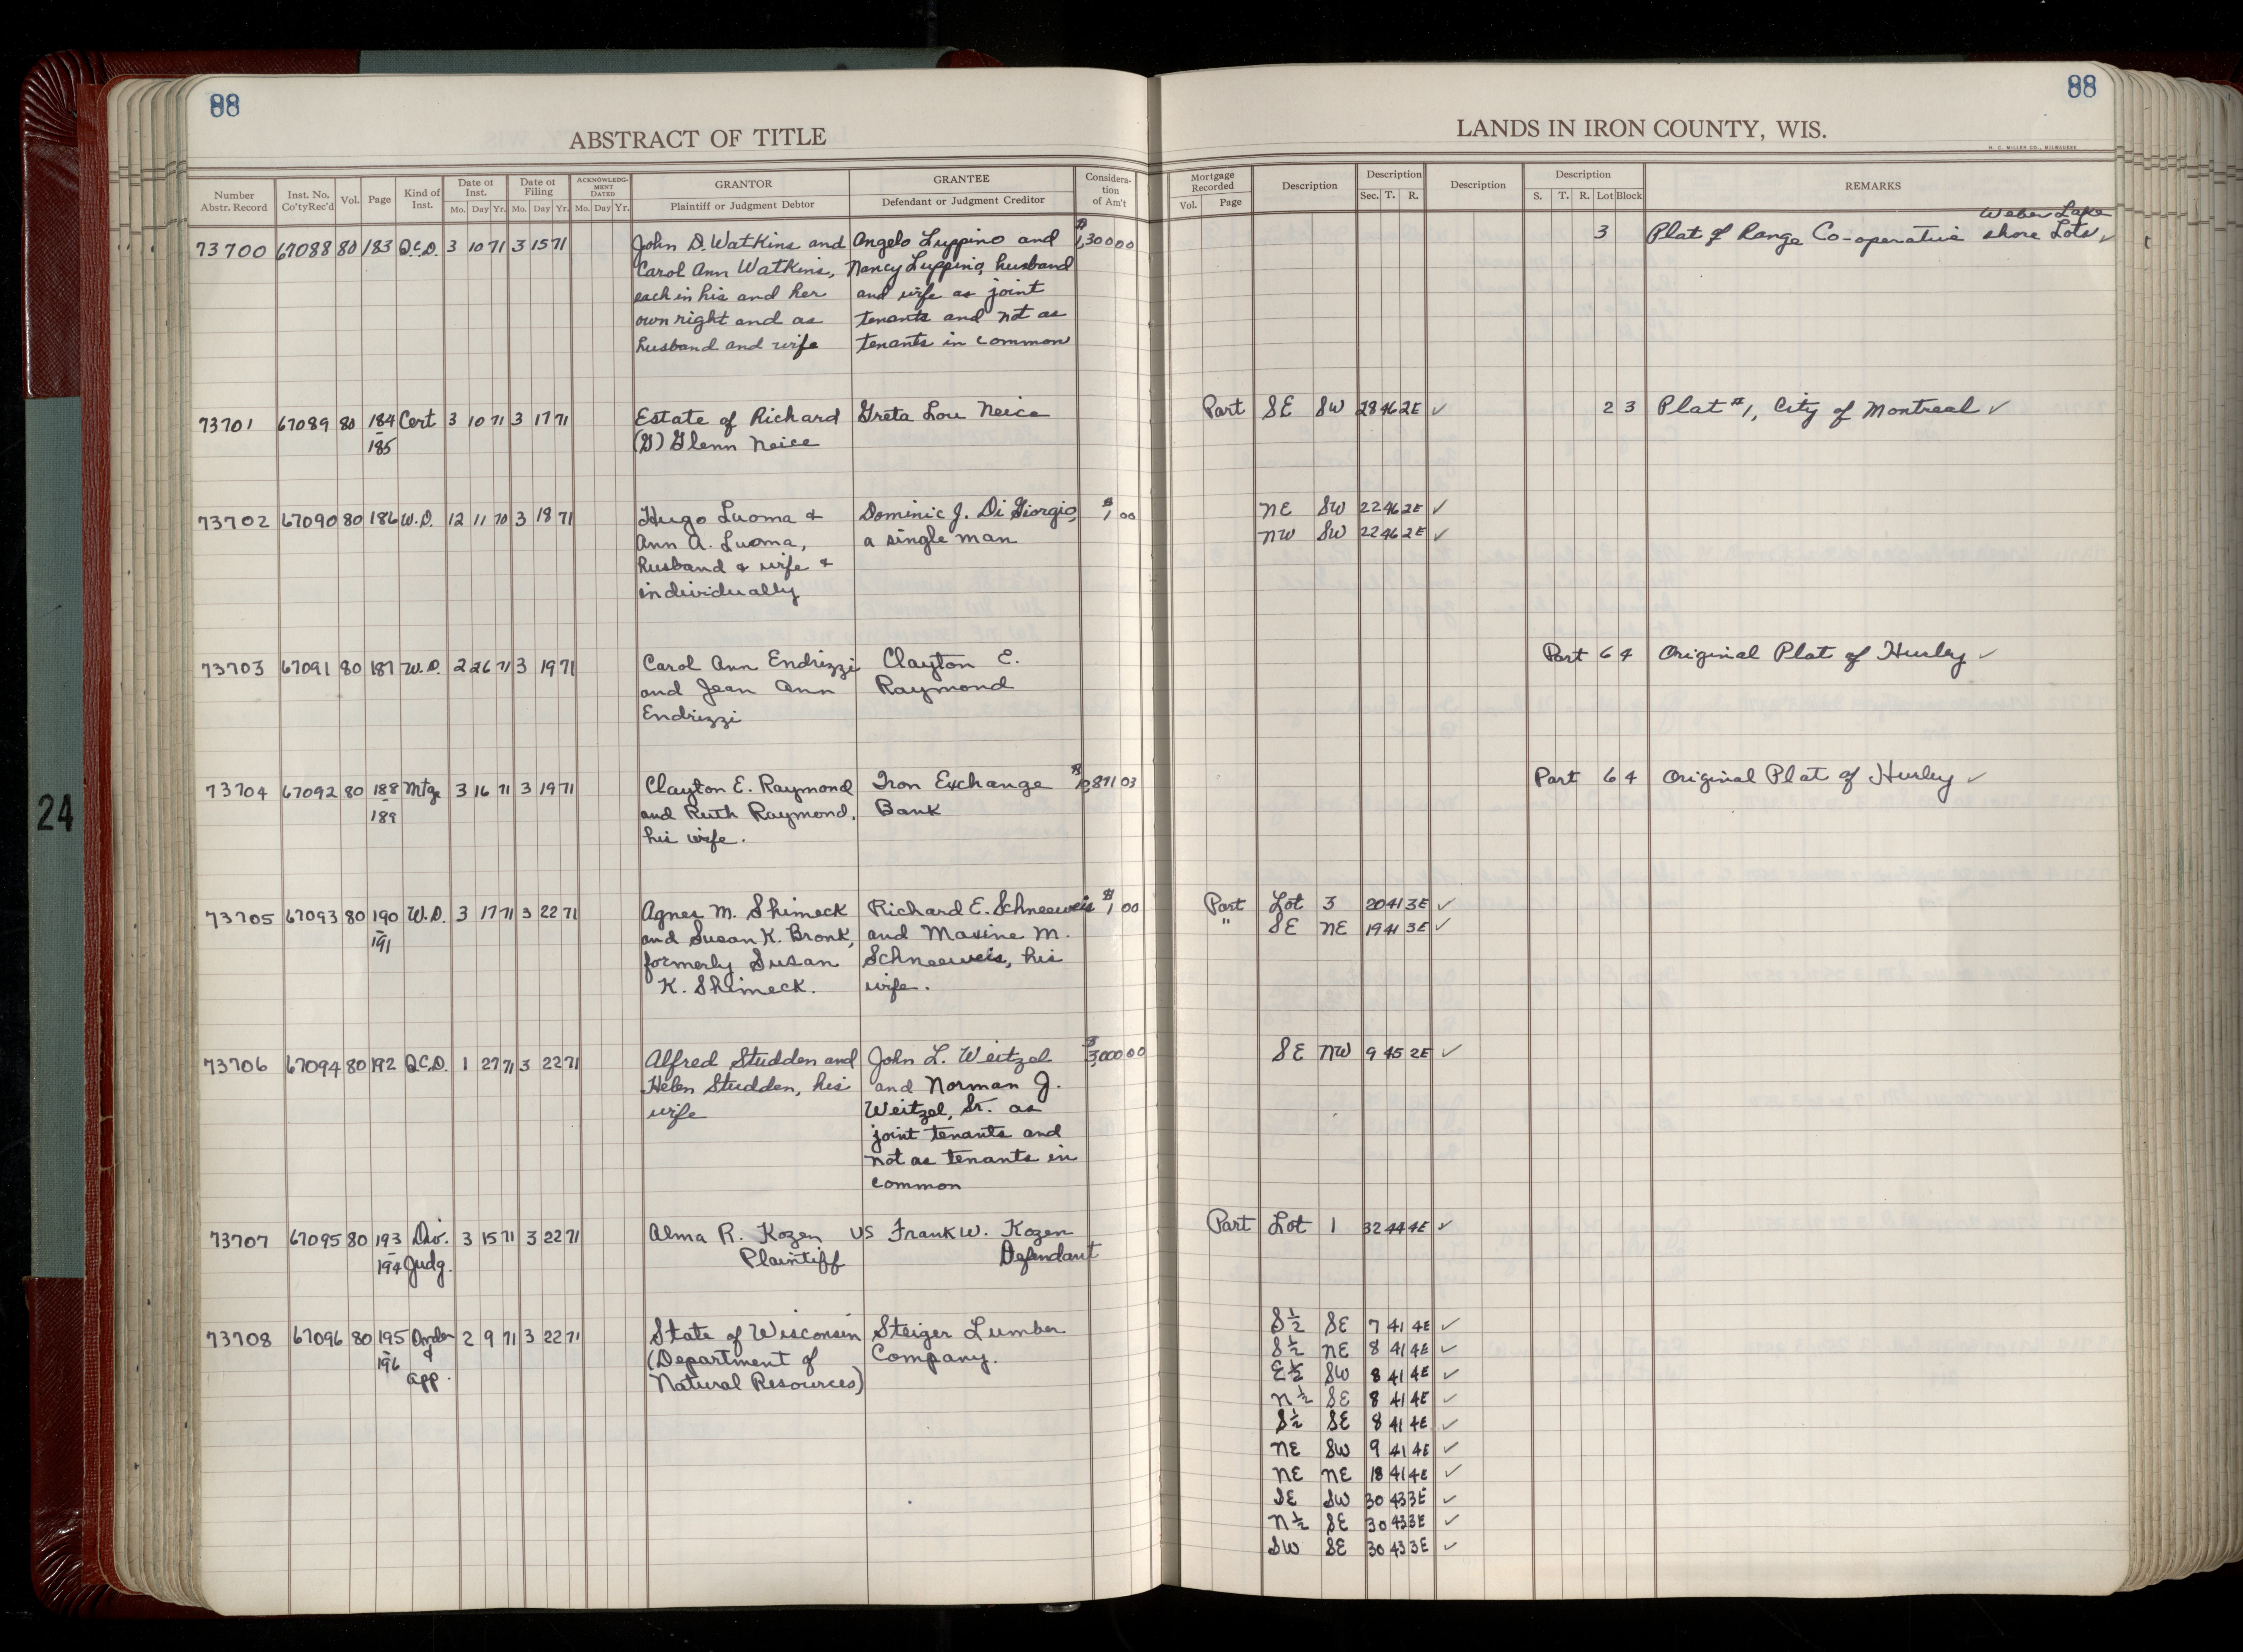 88
88
ABSTRACT OF TITLE
LANDS IN IRON COUNTY, WIS.
H. C. MILLER CO., MILWAUKEE
Number Abstr. Record Inst. No. Co'tyRec'd Vol. Page Kind of Inst. Date of Inst. Mo. Day Yr. Date of Filing Mo. Day Yr. ACKNOWLEDGMENT DATED Mo. Day Yr. GRANTOR Plaintiff or Judgment Debtor GRANTEE Defendant or Judgment Creditor Consideration of Am't Mortgage Recorded Vol. Page Description Description Sec. T. R. Description Description S. T. R. Lot Block REMARKS
Weber Lake
73700 67088 80 183 Q.C.D. 3 10 71 3 15 71 John D. Watkins and Angelo Luppino and $1,300 00 3 Plat of Range Co-operative shore Lots ✓
Carol Ann Watkins, Nancy Luppino, husband
each in his and her and wife as joint
own right and as tenants and not as
husband and wife tenants in common
73701 67089 80 184 Cert 3 10 71 3 17 71 Estate of Richard Greta Lou Neice Part SE SW 28 46 2E ✓ 2 3 Plat #1, City of Montreal ✓
-185 (G) Glenn Neice
73702 67090 80 186 W.D. 12 11 70 3 18 71 Hugo Luoma & Dominic J. Di Giorgio, $1 00 NE SW 22 46 2E ✓
Ann A. Luoma, a single man NW SW 22 46 2E ✓
husband & wife &
individually
73703 67091 80 187 W.D. 2 26 71 3 19 71 Carol Ann Endrizzi Clayton E. Part 6 4 Original Plat of Hurley ✓
and Jean Ann Raymond
Endrizzi
73704 67092 80 188 Mtge 3 16 71 3 19 71 Clayton E. Raymond Iron Exchange 871 03 Part 6 4 Original Plat of Hurley ✓
-189 and Ruth Raymond, Bank
his wife.
73705 67093 80 190 W.D. 3 17 71 3 22 71 Agnes M. Shimeck Richard E. Schneeweis $1 00 Part Lot 3 20 41 3E ✓
-191 and Susan K. Bronk, and Maxine M. " SE NE 19 41 3E ✓
formerly Susan Schneeweis, his
K. Shimeck. wife.
73706 67094 80 192 Q.C.D. 1 27 71 3 22 71 Alfred Studden and John L. Weitzel $3,000 00 SE NW 9 45 2E ✓
Helen Studden, his and Norman J.
wife Weitzel, Sr. as
joint tenants and
not as tenants in
common
73707 67095 80 193 Div. 3 15 71 3 22 71 Alma R. Kozen VS Frank W. Kozen Part Lot 1 32 44 4E ✓
-194 Judg. Plaintiff Defendant
73708 67096 80 195 Order 2 9 71 3 22 71 State of Wisconsin Steiger Lumber S½ SE 7 41 4E ✓
-196 & app. (Department of Company. S½ NE 8 41 4E ✓
Natural Resources) E½ SW 8 41 4E ✓
N½ SE 8 41 4E ✓
S½ SE 8 41 4E ✓
NE SW 9 41 4E ✓
NE NE 18 41 4E ✓
SE SW 30 43 3E ✓
N½ SE 30 43 3E ✓
SW SE 30 43 3E ✓
24